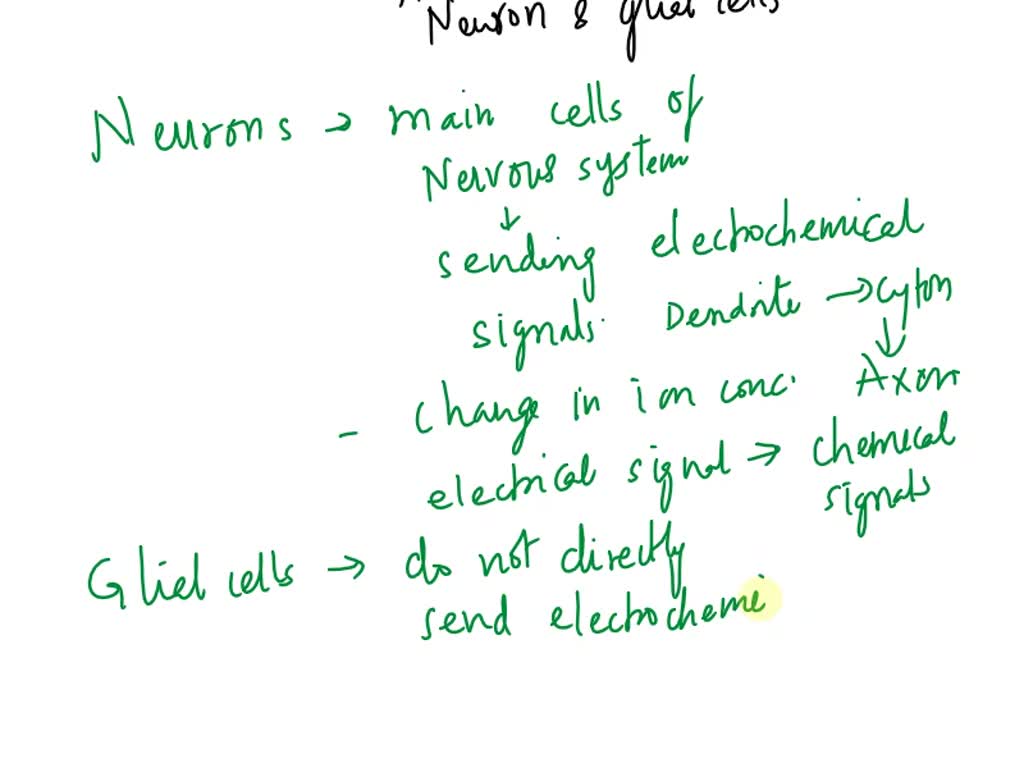 Neuron & gliel cells
Neurons → main cells of
Nervous system
↓
sending electrochemical
signals. Dendrite → Cyton
↓
- change in ion conc. Axon
electrical signal → chemical
signals
Gliel cells → do not directly
send electrochemi